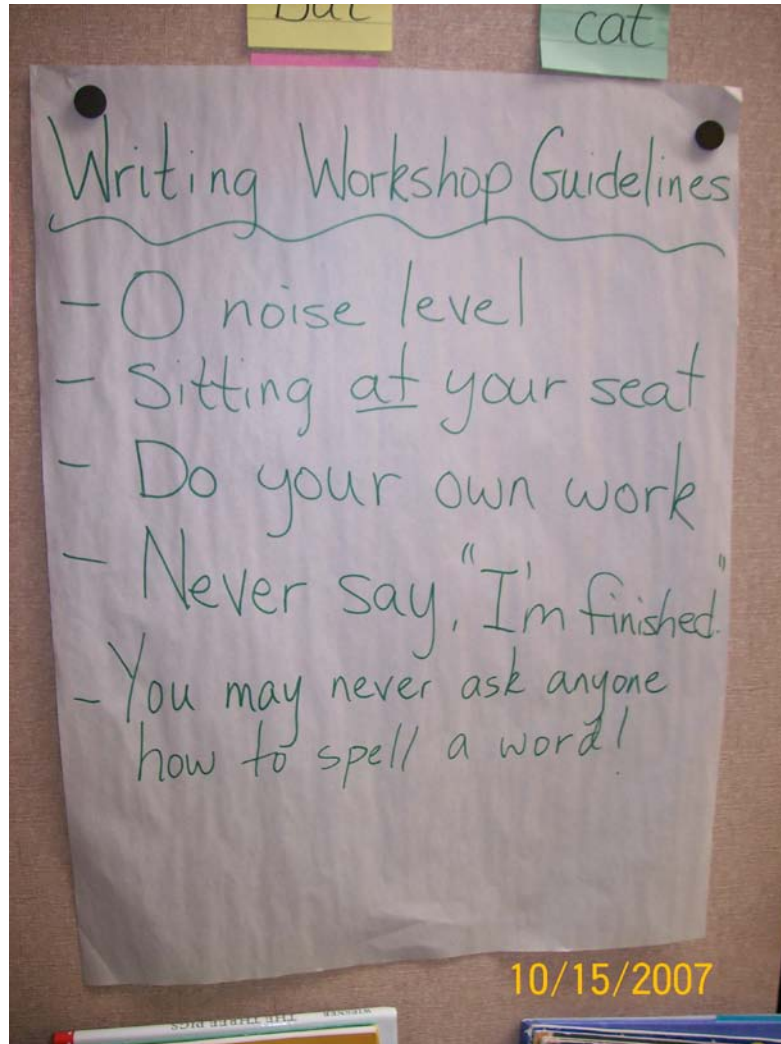 cat
Writing Workshop Guidelines
- 0 noise level
- Sitting at your seat
- Do your own work
- Never say, "I'm finished."
- You may never ask anyone
how to spell a word!
10/15/2007
WIESNER THE THREE PIGS